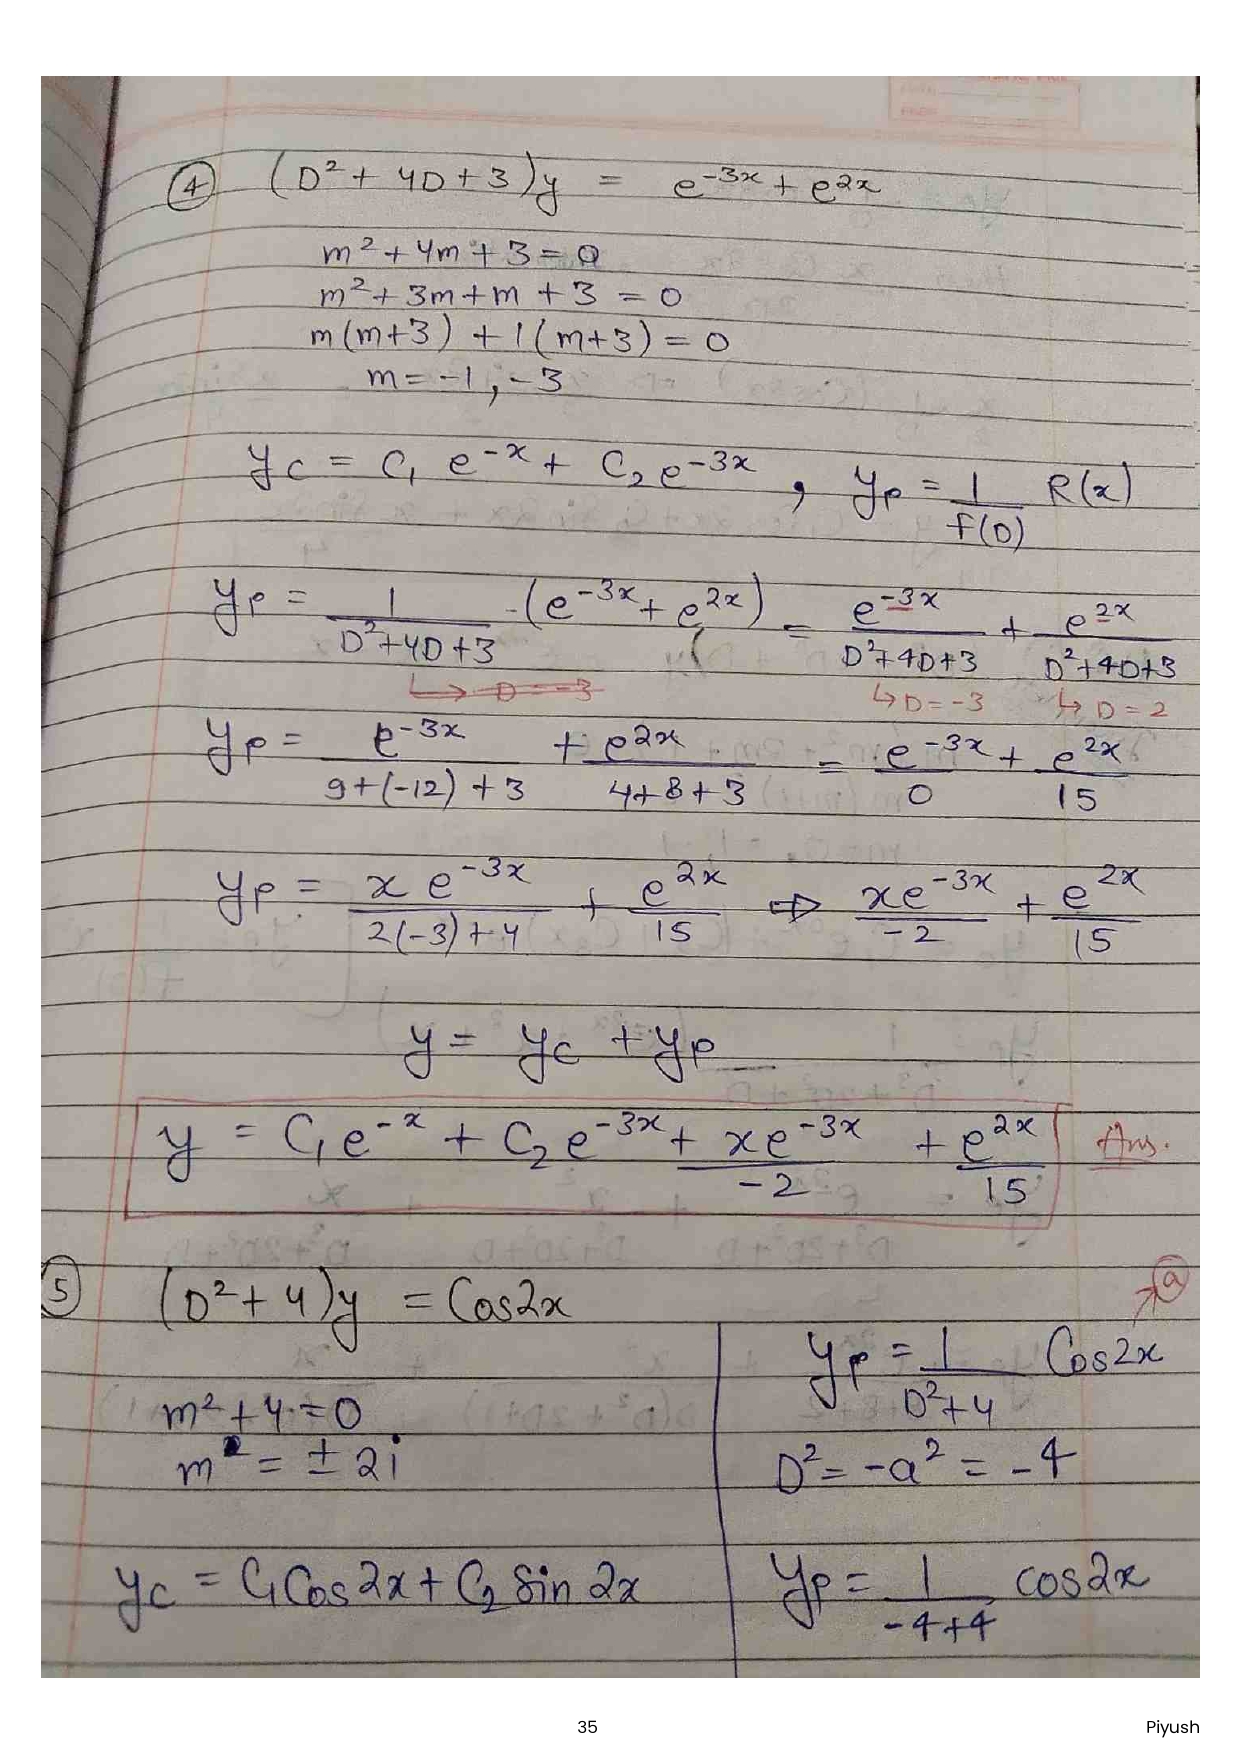 ④ (D² + 4D + 3)y = e^-3x + e^2x
m² + 4m + 3 = 0
m² + 3m + m + 3 = 0
m(m+3) + 1(m+3) = 0
m = -1, -3
yc = C₁ e^-x + C₂ e^-3x , yp = 1/f(D) R(x)
yp = 1/(D²+4D+3) · (e^-3x + e^2x) = e^-3x/(D²+4D+3) + e^2x/(D²+4D+3)
↳ D = -3 ↳ D = -3 ↳ D = 2
yp = e^-3x/(9+(-12)+3) + e^2x/(4+8+3) = e^-3x/0 + e^2x/15
yp = x e^-3x/(2(-3)+4) + e^2x/15 ⇒ xe^-3x/-2 + e^2x/15
y = yc + yp
y = C₁e^-x + C₂e^-3x + xe^-3x/-2 + e^2x/15 Ans.
⑤ (D² + 4)y = Cos2x
m² + 4 = 0
m = ± 2i
yc = C₁Cos2x + C₂ Sin 2x
ⓐ
yp = 1/(D²+4) Cos2x
D² = -a² = -4
yp = 1/(-4+4) cos2x
35 Piyush